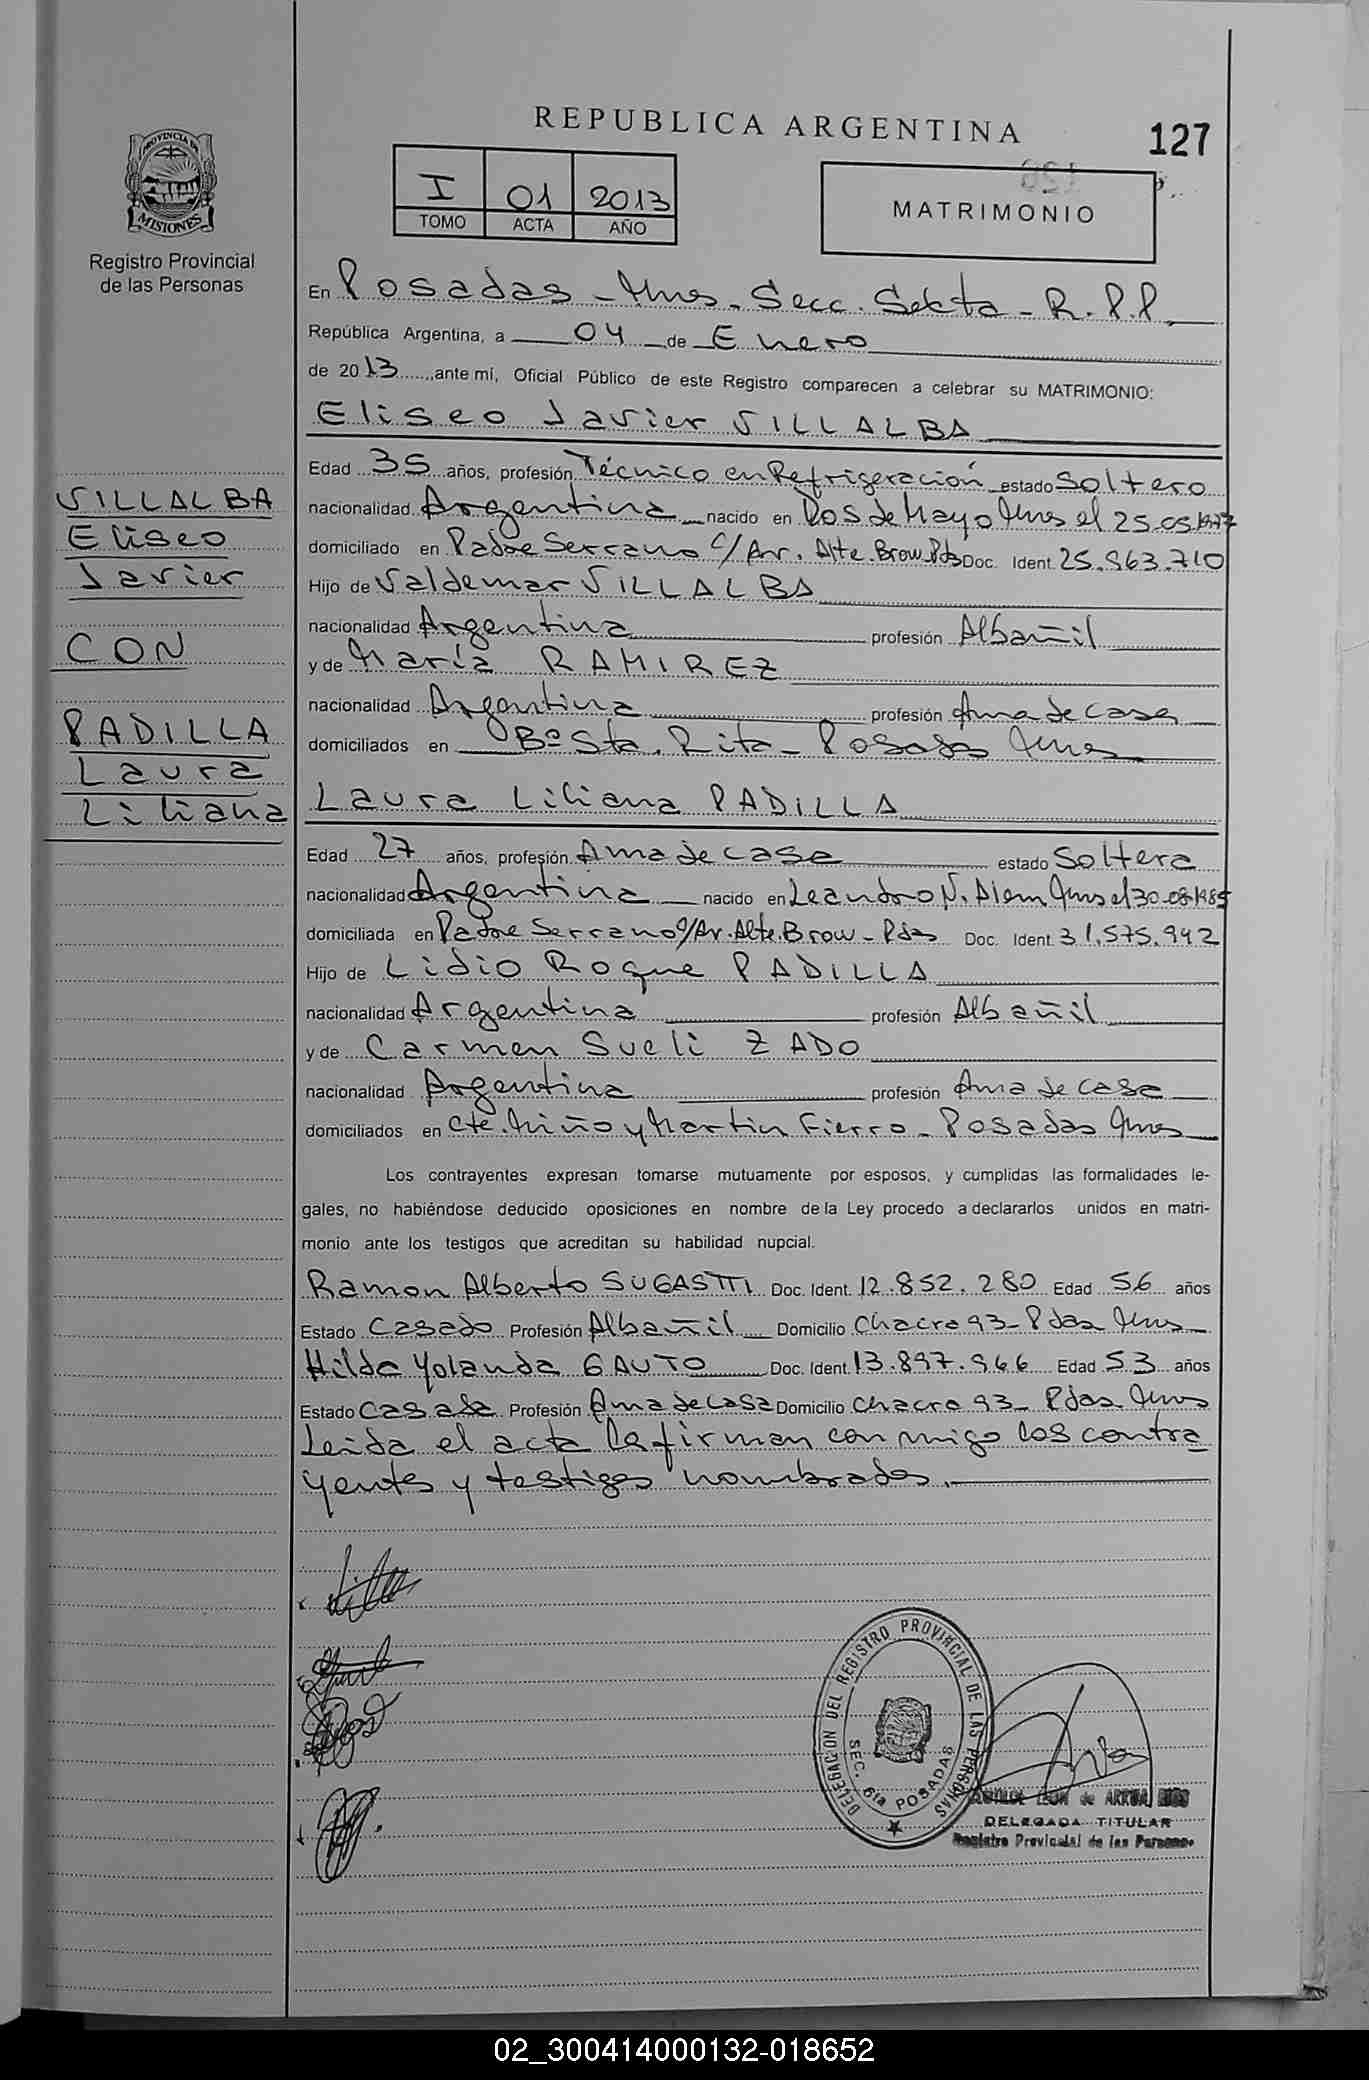 REPUBLICA ARGENTINA
127
PROVINCIA DE
MISIONES
Registro Provincial
de las Personas
I 01 2013
TOMO ACTA AÑO
MATRIMONIO
En Posadas - Mnes - Secc. Sexta - R.P.P.
República Argentina, a 04 de Enero
de 2013, ante mí, Oficial Público de este Registro comparecen a celebrar su MATRIMONIO:
Eliseo Javier VILLALBA
VILLALBA
Eliseo
Javier
CON
PADILLA
Laura
Liliana
Edad 35 años, profesión Técnico en Refrigeración estado Soltero
nacionalidad Argentina nacido en Dos de Mayo Mnes el 25-05-1977
domiciliado en Padre Serrano c/ Av. Alte. Brow. Pds Doc. Ident. 25.963.710
Hijo de Valdemar VILLALBA
nacionalidad Argentina profesión Albañil
y de María RAMIREZ
nacionalidad Argentina profesión Ama de casa
domiciliados en Bº Sta. Rita - Posadas Mnes
Laura Liliana PADILLA
Edad 27 años, profesión Ama de casa estado Soltera
nacionalidad Argentina nacido en Leandro N. Alem Mnes el 30-08-1985
domiciliada en Padre Serrano c/ Av. Alte. Brow - Pds Doc. Ident. 31.575.942
Hijo de Lidio Roque PADILLA
nacionalidad Argentina profesión Albañil
y de Carmen Sueli ZADO
nacionalidad Argentina profesión Ama de casa
domiciliados en Cte. Miño y Martin Fierro - Posadas Mnes
Los contrayentes expresan tomarse mutuamente por esposos, y cumplidas las formalidades le-
gales, no habiéndose deducido oposiciones en nombre de la Ley procedo a declararlos unidos en matri-
monio ante los testigos que acreditan su habilidad nupcial.
Ramon Alberto SUGASTTI Doc. Ident. 12.852.280 Edad 56 años
Estado Casado Profesión Albañil Domicilio Chacra 93 - Pdas Mnes
Hilda Yolanda GAUTO Doc. Ident. 13.897.966 Edad 53 años
Estado Casada Profesión Ama de casa Domicilio Chacra 93 - Pdas Mnes
Leida el acta la firman conmigo los contra
yentes y testigos nombrados.
DELEGACION DEL REGISTRO PROVINCIAL DE LAS PERSONAS
SEC. 6ta POSADAS
LEON de ARRUA
DELEGADA TITULAR
Registro Provincial de las Personas
02_300414000132-018652